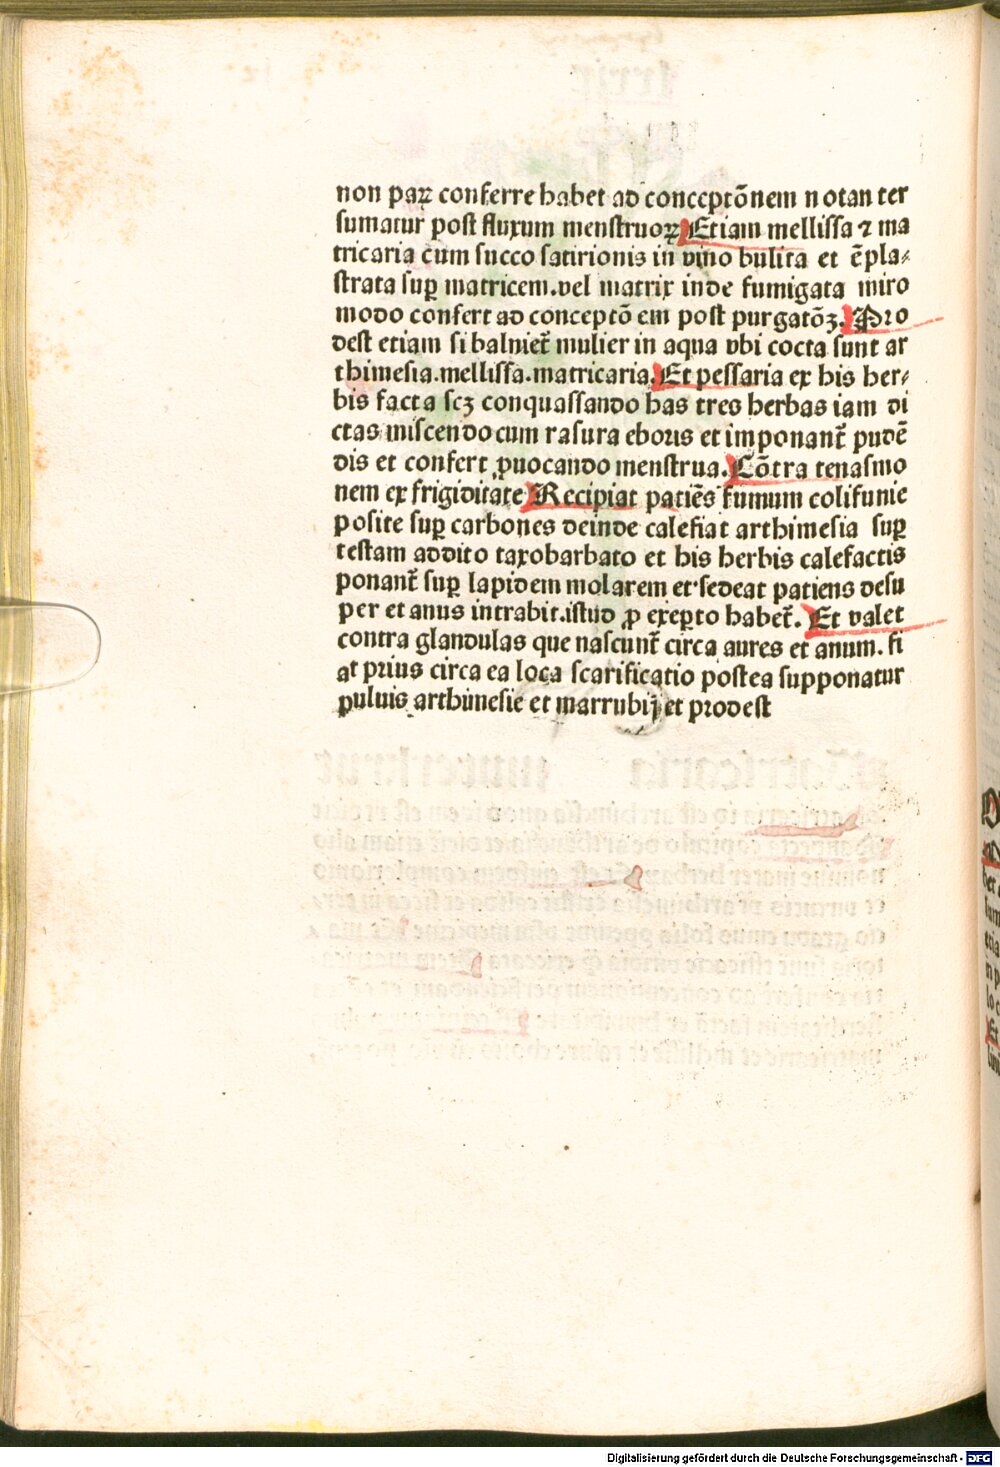 non paꝝ conferre habet ad conceptōnem notanter
sumatur post fluxum menstruoꝝ Etiam mellissa ⁊ ma
tricaria cum succo satirionis in vino bulita et ēpla⸗
strata suꝑ matricem.vel matrix inde fumigata miro
modo confert ad conceptō em post purgatōꝫ. Pro
dest etiam si balniet̄ mulier in aqua vbi cocta sunt ar
thimesia.mellissa.matricaria. Et pessaria ex his her⸗
bis facta scꝫ conquassando has tres herbas iam di
ctas miscendo cum rasura eboris et imponant̄ pudē
dis et confert ꝓuocando menstrua. Cōtra tenasmo
nem ex frigiditate Recipiat patiēs fumum colifunie
posite suꝑ carbones deinde calefiat arthimesia suꝑ
testam addito taxobarbato et his herbis calefactis
ponant̄ suꝑ lapidem molarem et sedeat patiens desu
per et anus intrabit.istud ꝓ exꝑto habet̄. Et valet
contra glandulas que nascunt̄ circa aures et anum. fi
at prius circa ea loca scarificatio postea supponatur
puluis arthimesie et marrubij et prodest
Digitalisierung gefördert durch die Deutsche Forschungsgemeinschaft - DFG